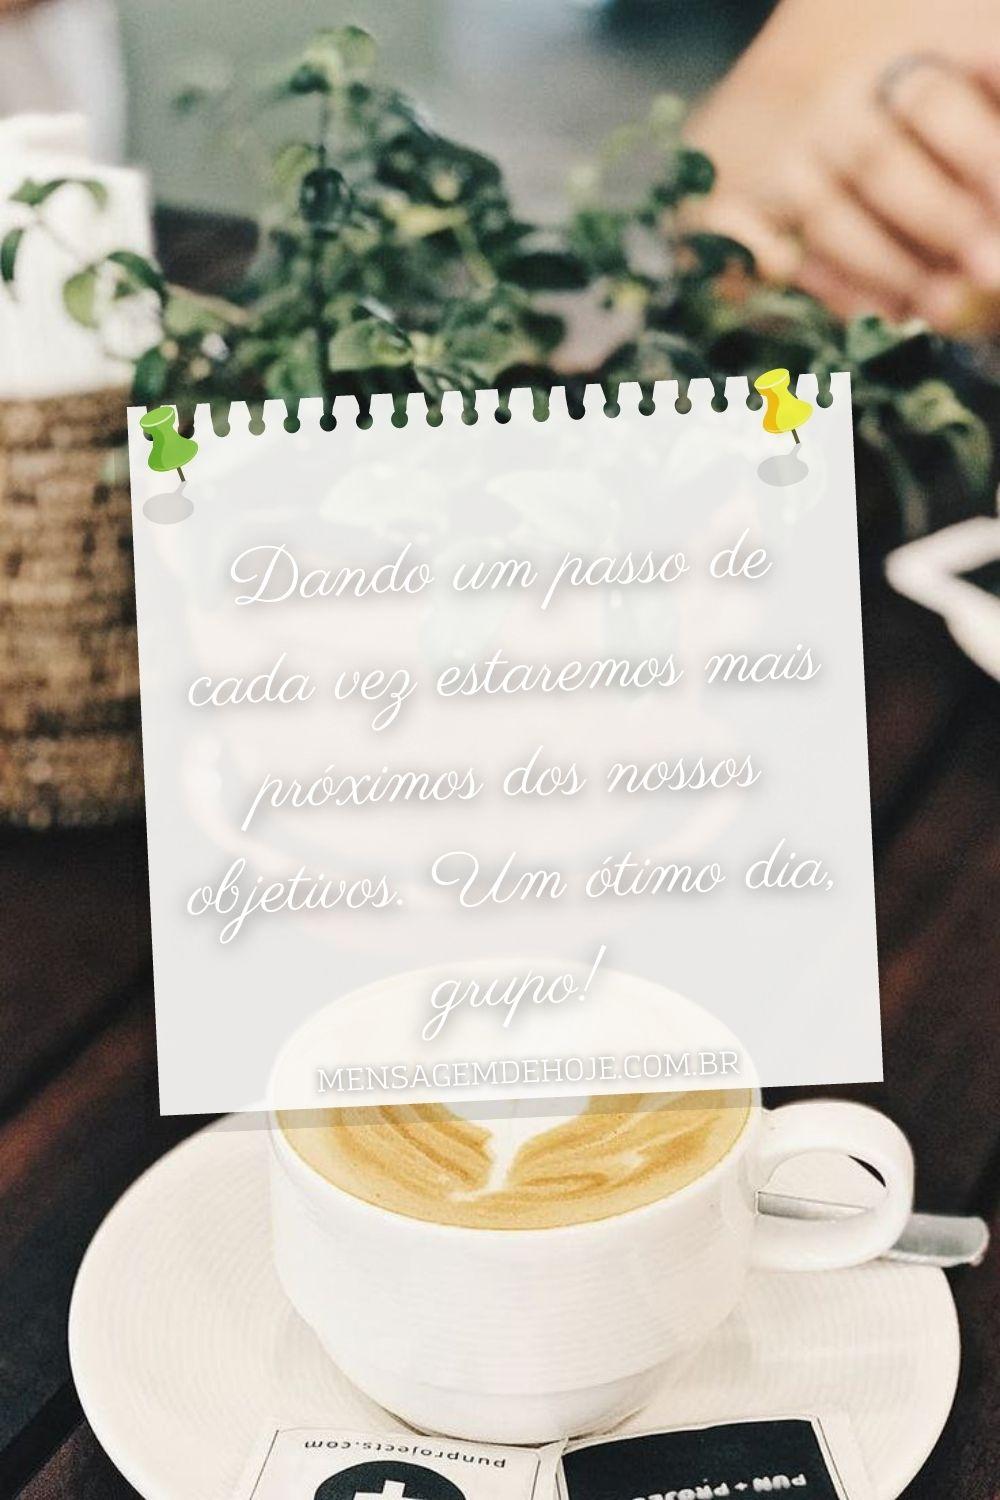 Dando um passo de
cada vez estaremos mais
próximos dos nossos
objetivos. Um ótimo dia,
grupo!
MENSAGEMDEHOJE.COM.BR
punprojects.com
PUN + PROJE